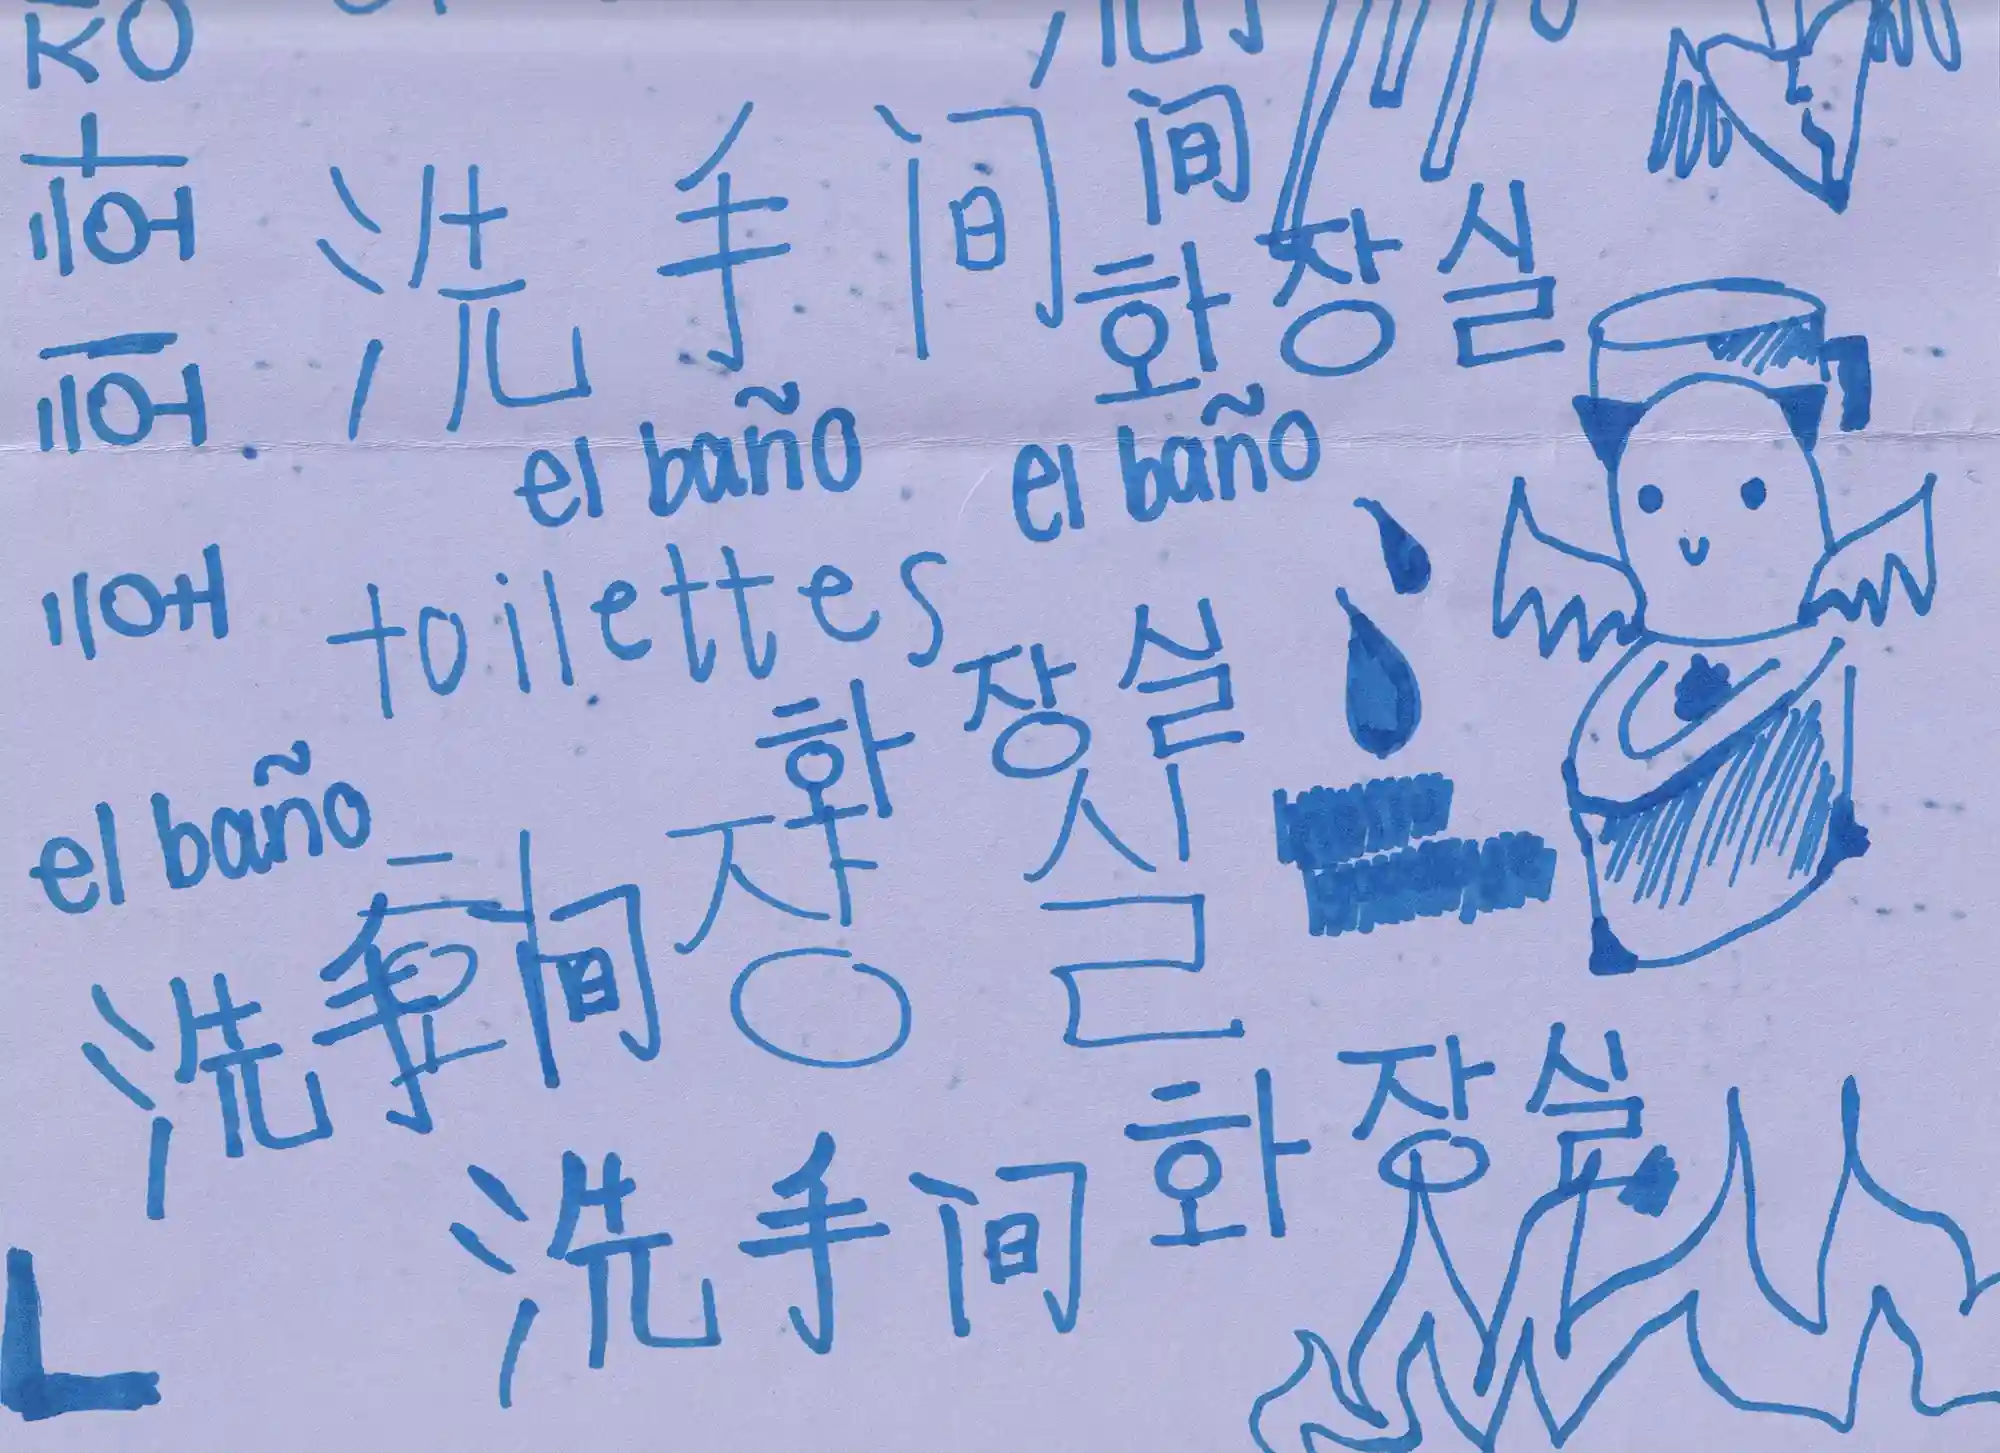 间
洗手间
화장실
el baño el baño
toilettes
화장실
el baño
화장실
洗手间
화장실
洗手间